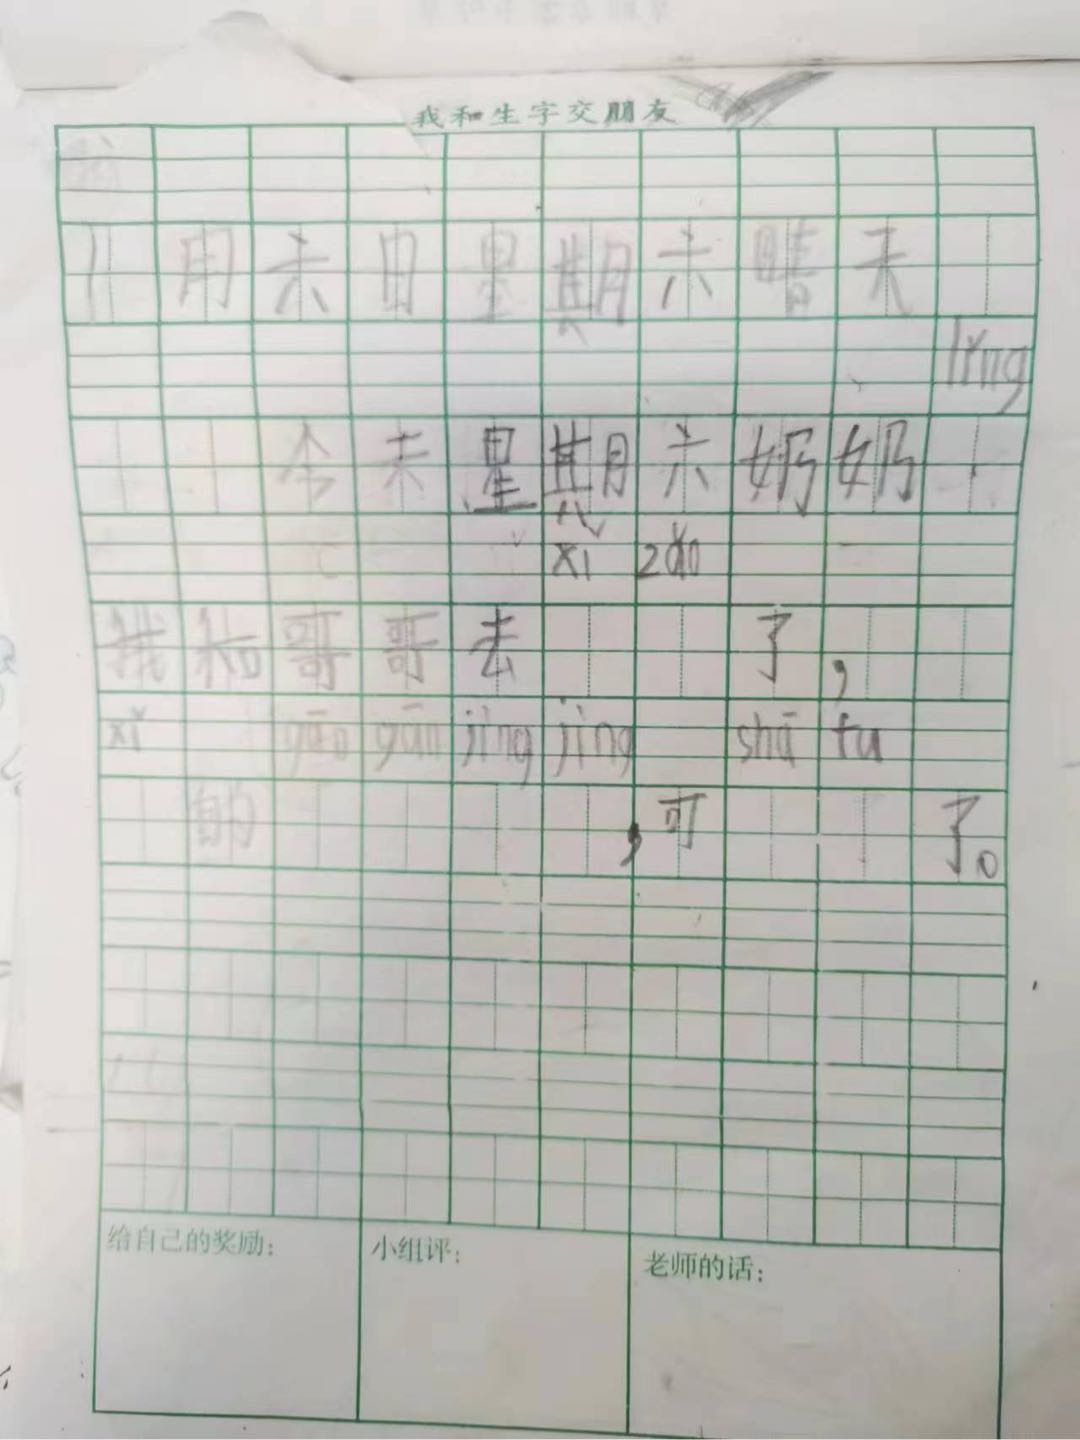 我和生字交朋友
11月六日星期六晴天
lǐng
今天星期六奶奶
xǐ zǎo
我和哥哥去 了，
xǐ gān gān jìng jìng shū fu
的 ，可 了。
给自己的奖励： 小组评： 老师的话：